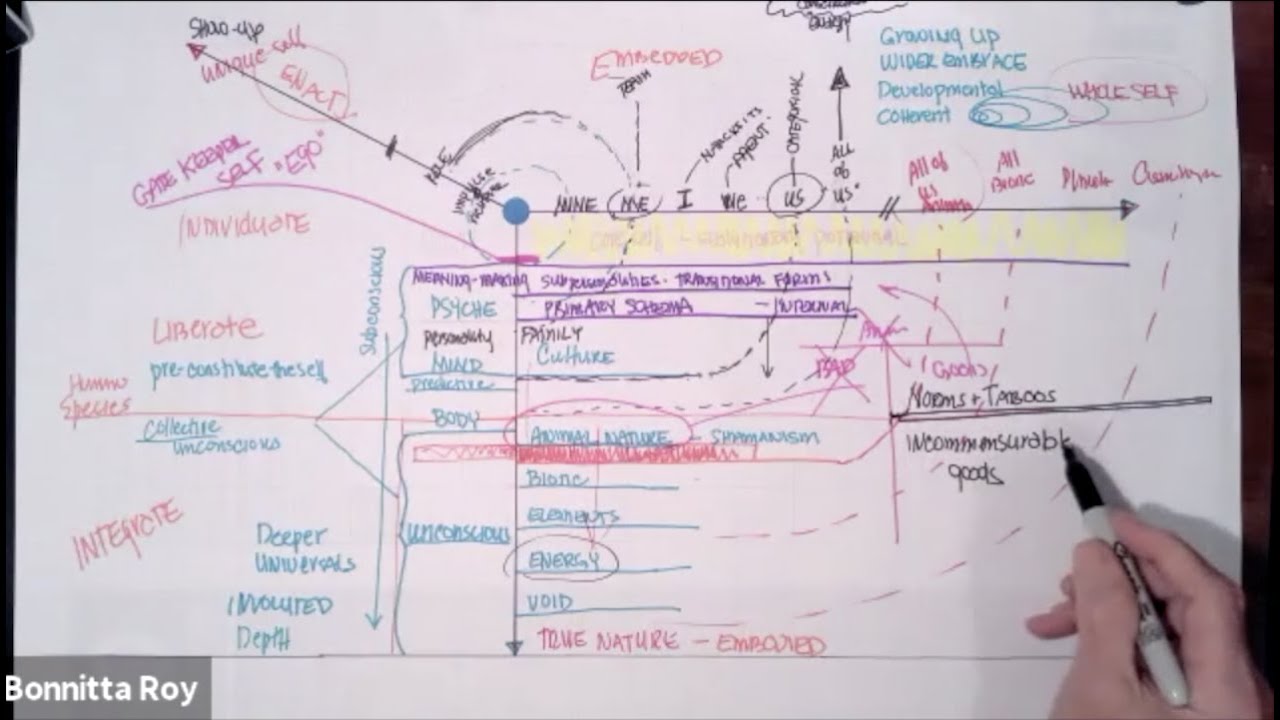 Show-up
Unique self
ENACT
EMBEDDED
TEAM
GROWING UP
WIDER EMBRACE
Developmental
Coherent
WHOLE SELF
GATE KEEPER
SELF "EGO"
INDIVIDUATE
ROLE
MINE ME I We US
CATEGORICAL
ALL
OF
US"
//
All of
us
All
Bionic
MEANING-MAKING SUBPERSONALITIES - TRANSITIONAL FORMS
PSYCHE PRIMARY SCHEMA - INTERNAL
Subconscious
LIBERATE
personality FAMILY
MIND CULTURE
predictive
pre-constitute the self
BAD
Goods
Human
Species
NORMS + TABOOS
BODY
collective
unconscious
ANIMAL NATURE - SHAMANISM
incommensurable
goods
Bionic
INTEGRATE
Deeper
UNIVERSALS
unconscious
ELEMENTS
ENERGY
INVOLUTED
Depth
VOID
TRUE NATURE - EMBODIED
Bonnitta Roy